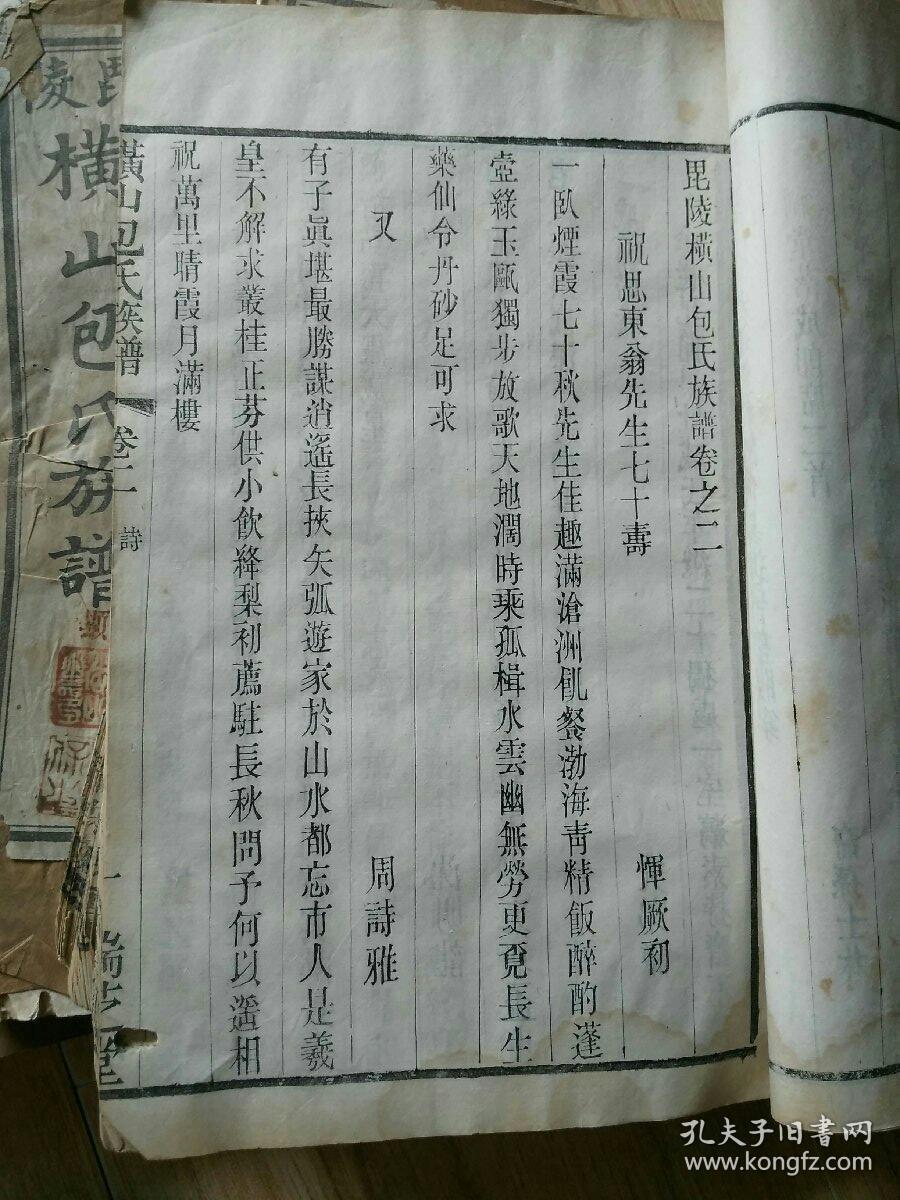 毘陵橫山包氏族譜卷之二
祝思東翁先生七十壽
惲厥初
一臥煙霞七十秋先生佳趣滿滄洲飢餐渤海靑精飯醉酌蓬
壺綠玉甌獨步放歌天地濶時乘孤楫水雲幽無勞更覓長生
藥仙令丹砂足可求
又
周詩雅
有子眞堪最勝謀逍遙長挾矢弧遊家於山水都忘市人是羲
皇不解求叢桂正芬供小飲絳梨初薦駐長秋問予何以遥相
祝萬里晴霞月滿樓
橫山包氏族譜
卷二
詩
毘陵
橫山包氏族譜
孔夫子旧书网
www.kongfz.com